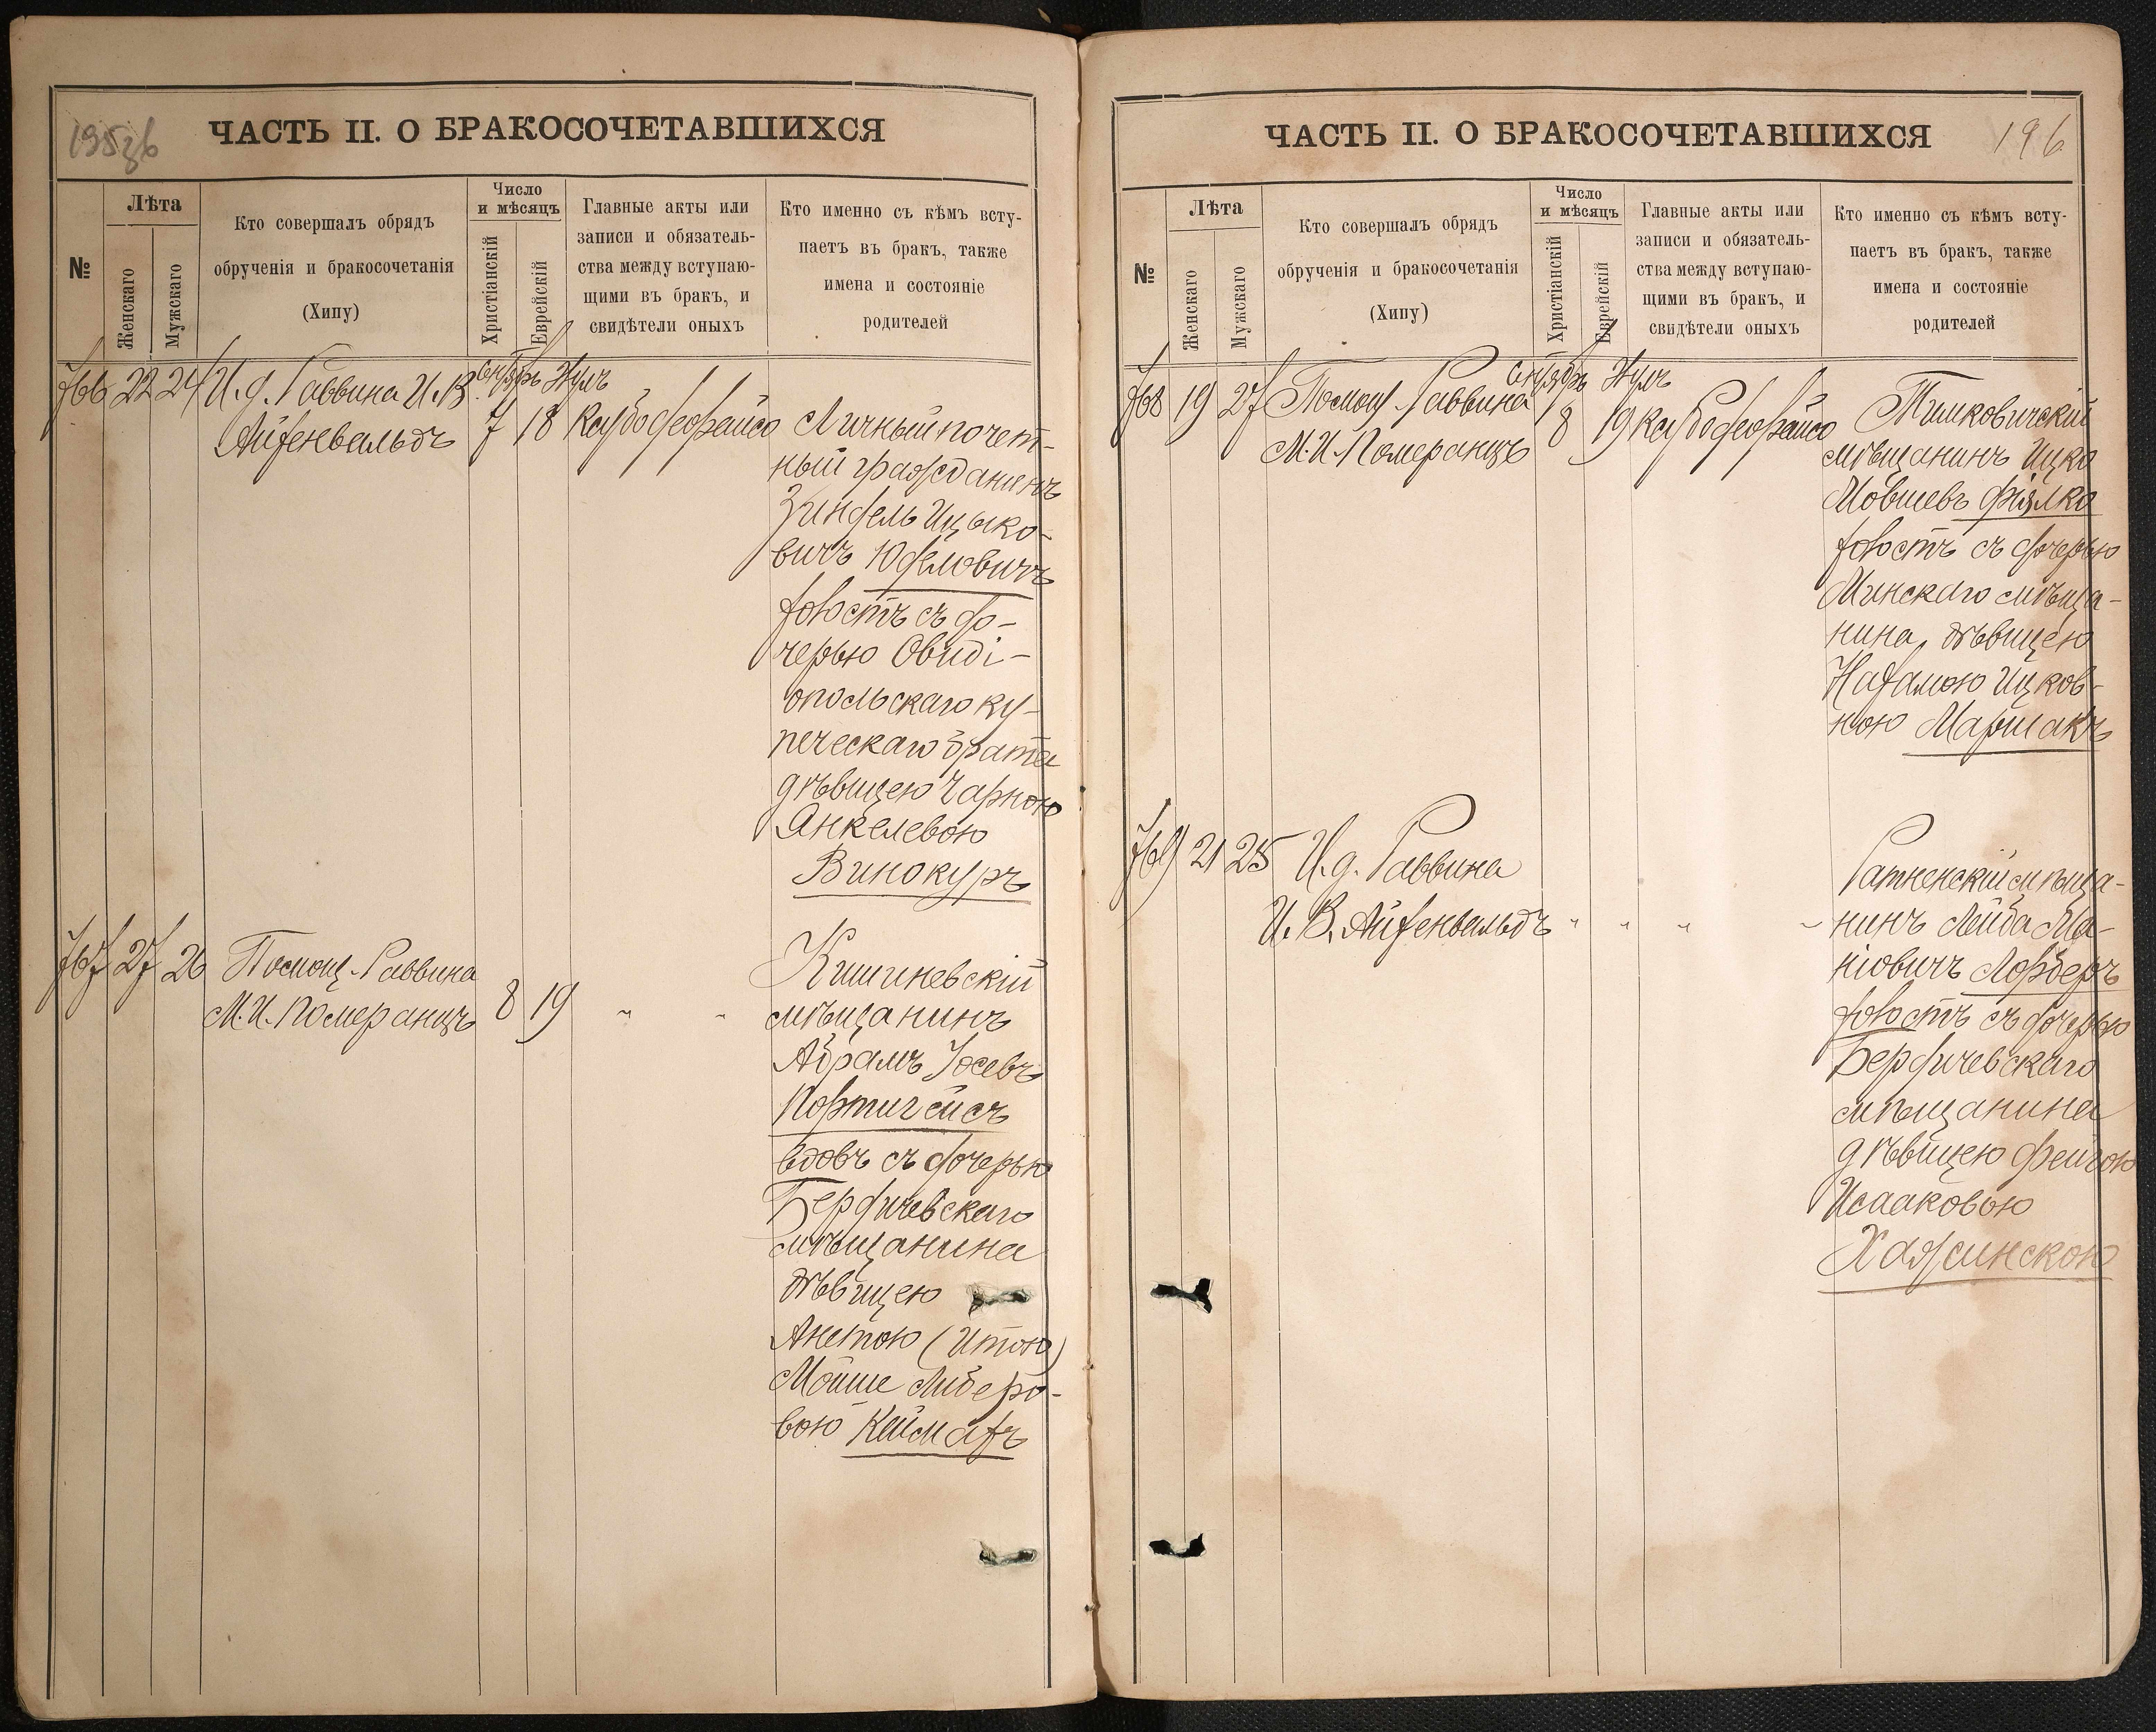 195 об
ЧАСТЬ II. О БРАКОСОЧЕТАВШИХСЯ
№
Лѣта
Женскаго
Мужскаго
Кто совершалъ обрядъ
обрученія и бракосочетанія
(Хипу)
Число
и мѣсяцъ
Христіанскій
Еврейскій
Главные акты или
записи и обязатель-
ства между вступаю-
щими въ бракъ, и
свидѣтели оныхъ
Кто именно съ кѣмъ всту-
паетъ въ бракъ, также
имена и состояніе
родителей
766 22 24 И. д. Раввина И. В.
Айзенвальдъ
Сентябрь Элулъ
7 18
Личный почет-
ный гражданинъ
Зиндель Ицко-
вичъ Юделовичъ
холостъ съ до-
черью Овиді-
опольскаго ку-
печескаго брата
дѣвицею Чарною
Янкелевою
Винокуръ
767 27 26 Помощ. Раввина
М. И. Померанцъ
8 19 " "
Кишиневскій
мѣщанинъ
Абрамъ Іосевъ
Портигейсъ
вдовъ съ дочерью
Бердичевскаго
мѣщанина
дѣвицею
Анетою (Итою)
Мойше Либеро-
вою Кеймахъ
ЧАСТЬ II. О БРАКОСОЧЕТАВШИХСЯ
196
№
Лѣта
Женскаго
Мужскаго
Кто совершалъ обрядъ
обрученія и бракосочетанія
(Хипу)
Число
и мѣсяцъ
Христіанскій
Еврейскій
Главные акты или
записи и обязатель-
ства между вступаю-
щими въ бракъ, и
свидѣтели оныхъ
Кто именно съ кѣмъ всту-
паетъ въ бракъ, также
имена и состояніе
родителей
768 19 27 Помощ. Раввина
М. И. Померанцъ
Сентябрь Элулъ
8 19
Тимковичскій
мѣщанинъ Ицко
Мовшевъ Фіялко
холостъ съ дочерью
Минскаго мѣща-
нина, дѣвицею
Нахамою Ицков-
ною Маршакъ
769 21 25 И. д. Раввина
И. В. Айзенвальдъ " " " "
Ратненскій мѣща-
нинъ Лейба Ма-
ніовичъ Лорберъ
холостъ съ дочерью
Бердичевскаго
мѣщанина
дѣвицею Фейгою
Исааковою
Хажинскою